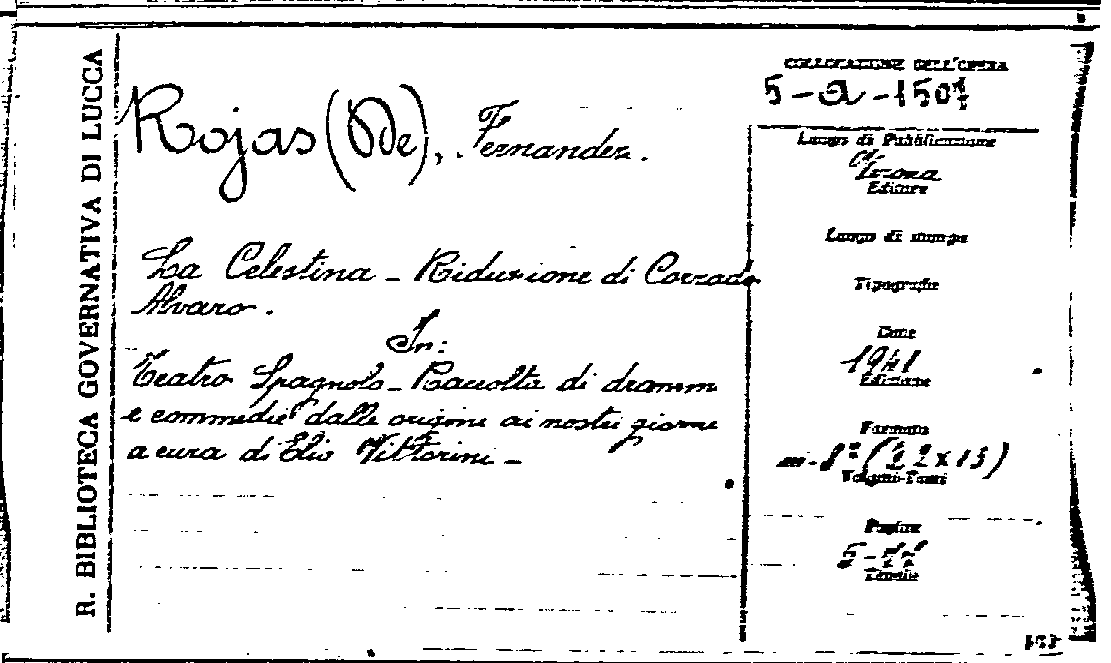 R. BIBLIOTECA GOVERNATIVA DI LUCCA
COLLOCAZIONE DELL'OPERA
5-a-150
Rojas (De), Fernandez.
La Celestina - Riduzione di Corrado
Alvaro.
In:
Teatro Spagnolo - Raccolta di drammi
e commedie dalle origini ai nostri giorni
a cura di Elio Vittorini -
Luogo di Pubblicazione
Editore
Luogo di stampa
Tipografia
Date
1941
Edizione
Formato
in-8° (22x15)
Volumi-Tomi
Pagine
5-